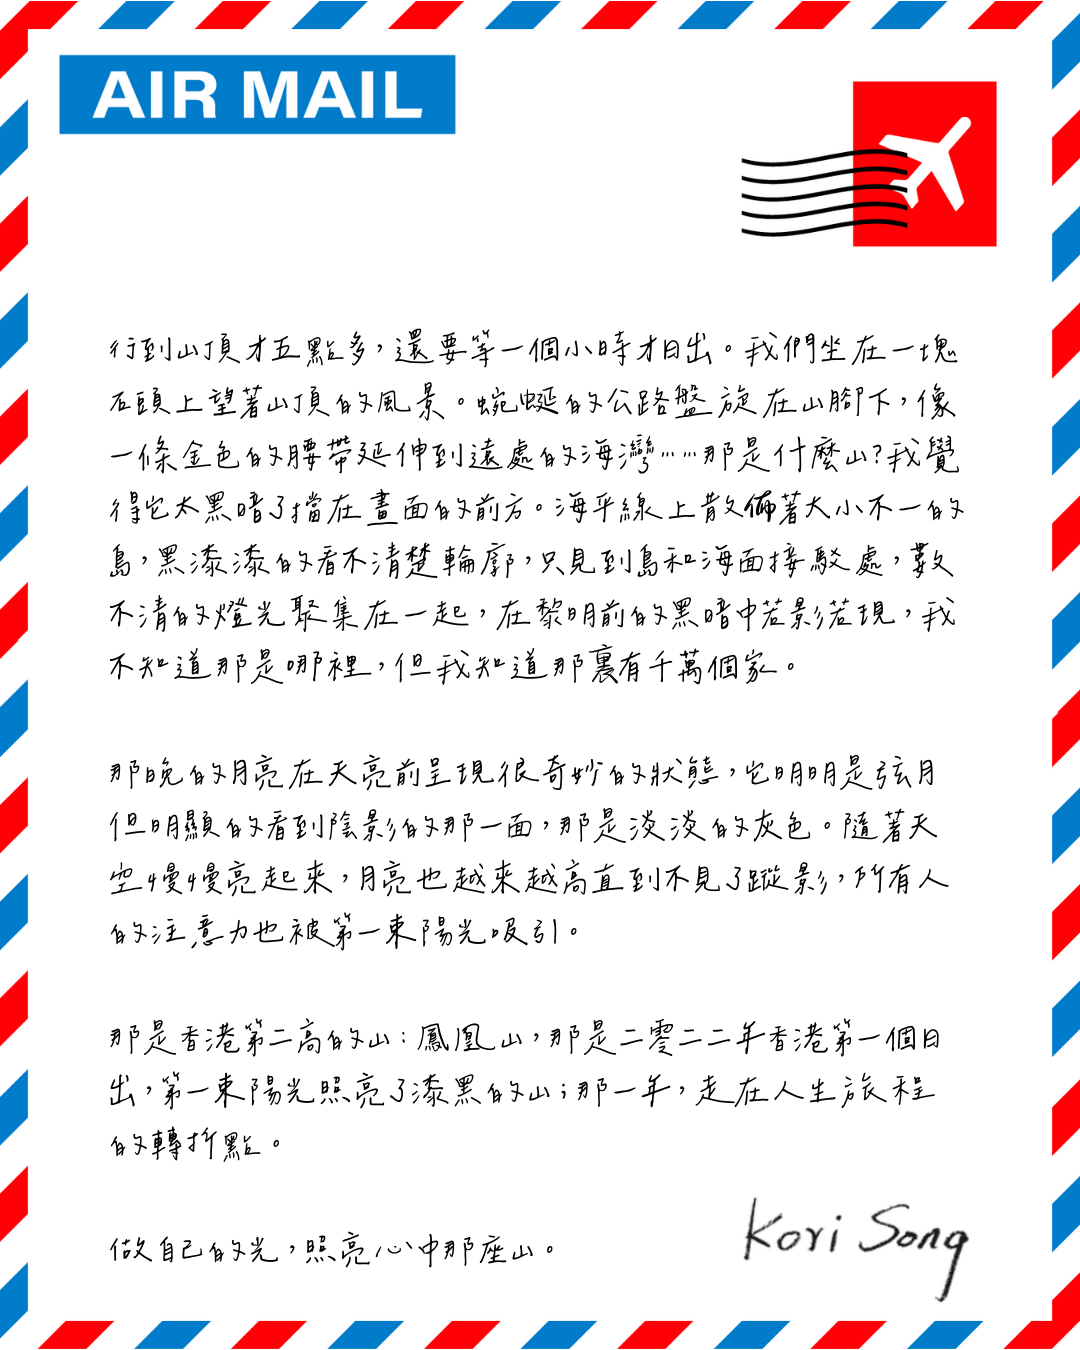 AIR MAIL
行到山頂才五點多，還要等一個小時才日出。我們坐在一塊
石頭上望著山頂的風景。蜿蜒的公路盤旋在山腳下，像
一條金色的腰帶延伸到遠處的海灣……那是什麼山?我覺
得它太黑暗了擋在畫面的前方。海平線上散佈著大小不一的
島，黑漆漆的看不清楚輪廓，只見到島和海面接駁處，數
不清的燈光聚集在一起，在黎明前的黑暗中若影若現，我
不知道那是哪裡，但我知道那裏有千萬個家。
那晚的月亮在天亮前呈現很奇妙的狀態，它明明是弦月
但明顯的看到陰影的那一面，那是淡淡的灰色。隨著天
空慢慢亮起來，月亮也越來越高直到不見了蹤影，所有人
的注意力也被第一束陽光吸引。
那是香港第二高的山：鳳凰山，那是二零二二年香港第一個日
出，第一束陽光照亮了漆黑的山；那一年，走在人生旅程
的轉折點。
做自己的光，照亮心中那座山。
Kori Song